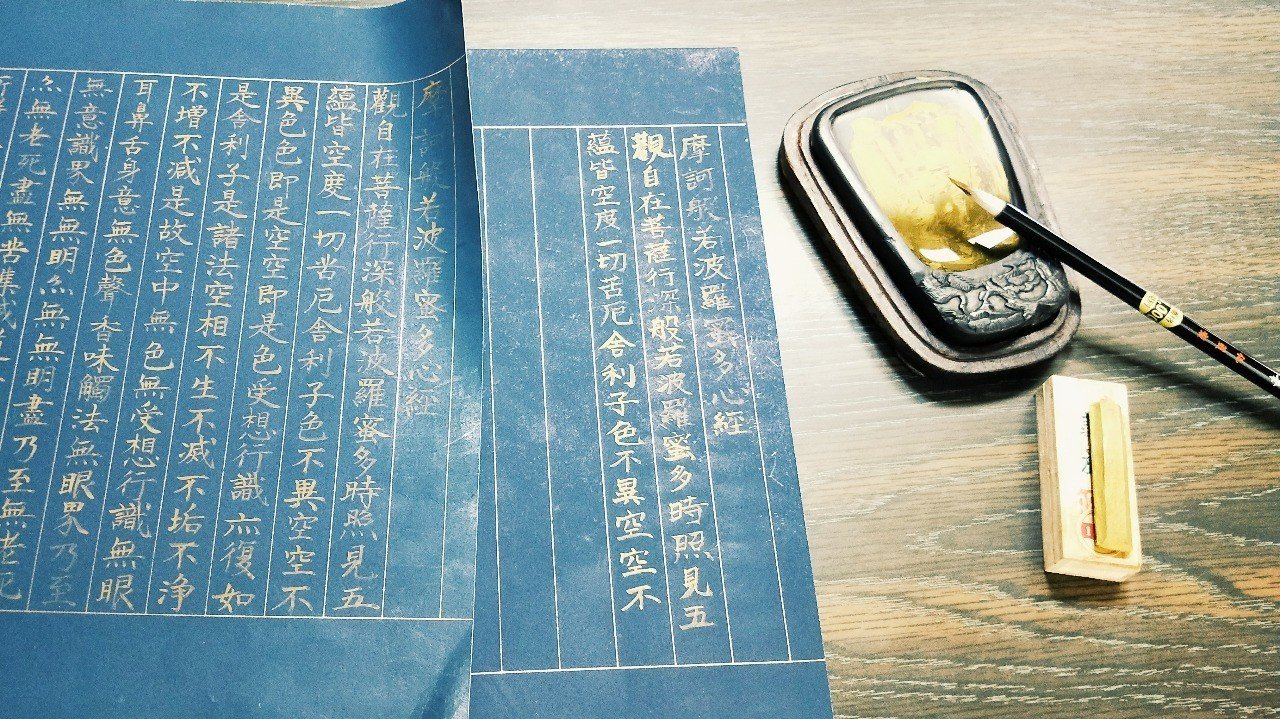 摩訶般若波羅蜜多心經
觀自在菩薩行深般若波羅蜜多時照見五
蘊皆空度一切苦厄舍利子色不異空空不
摩訶般若波羅蜜多心經
觀自在菩薩行深般若波羅蜜多時照見五
蘊皆空度一切苦厄舍利子色不異空空不
異色色即是空空即是色受想行識亦復如
是舍利子是諸法空相不生不滅不垢不净
不增不減是故空中無色無受想行識無眼
耳鼻舌身意無色聲香味觸法無眼界乃至
無意識界無無明亦無無明盡乃至無老死
亦無老死盡無苦集滅